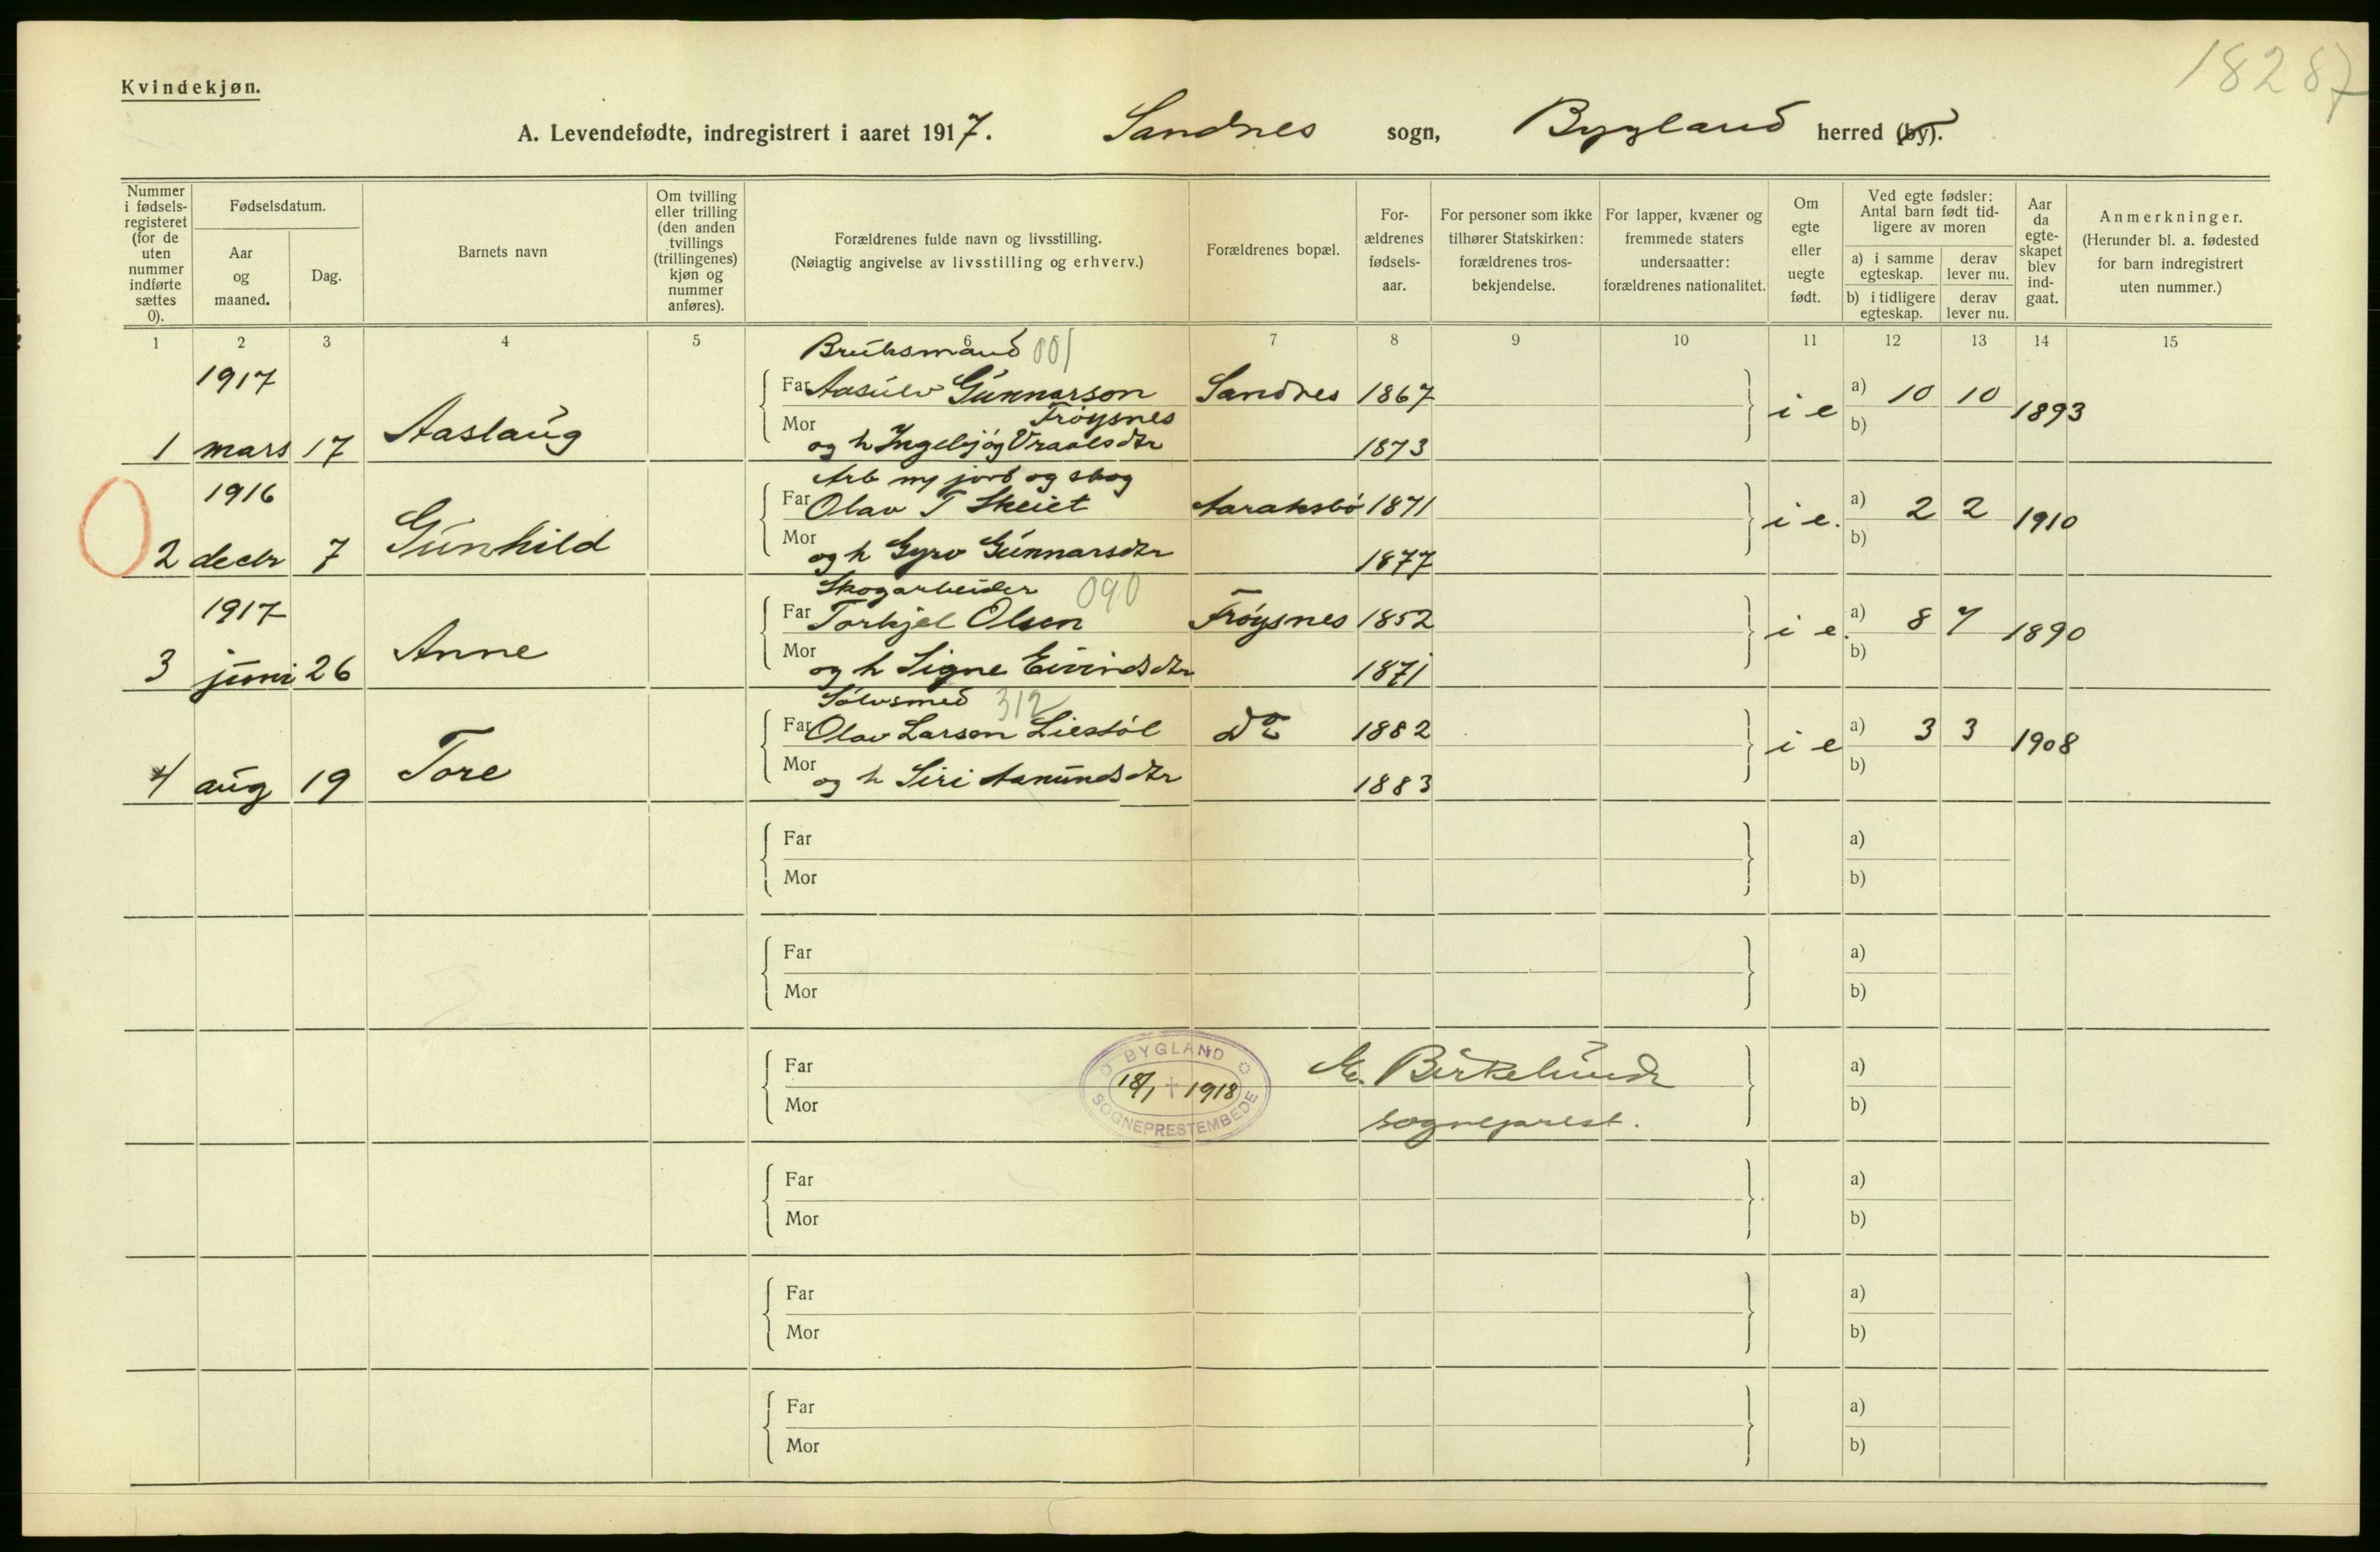 18287
Kvindekjøn.
A. Levendefødte, indregistrert i aaret 1917. Sandnes sogn, Bygland herred (by).
Nummer i fødsels-registeret (for de uten nummer indførte sættes 0).
Fødselsdatum.
Aar og maaned.
Dag.
Barnets navn
Om tvilling eller trilling (den anden tvillings (trillingenes) kjøn og nummer anføres).
Forældrenes fulde navn og livsstilling.
(Nøiagtig angivelse av livsstilling og erhverv.)
Forældrenes bopæl.
For-ældrenes fødsels-aar.
For personer som ikke tilhører Statskirken: forældrenes tros-bekjendelse.
For lapper, kvæner og fremmede staters undersaatter: forældrenes nationalitet.
Om egte eller uegte født.
Ved egte fødsler: Antal barn født tid-ligere av moren
a) i samme egteskap.
derav lever nu.
b) i tidligere egteskap.
derav lever nu.
Aar da egte-skapet blev ind-gaat.
Anmerkninger.
(Herunder bl. a. fødested for barn indregistrert uten nummer.)
1 2 3 4 5 6 7 8 9 10 11 12 13 14 15
Bruksmand 001
1917
Far Aasulv Gunnarson Sandnes 1867 a) 10 10
Frøysnes
1 mars 17 Aaslaug Mor og h Ingebjøg Vraalsdtr 1873 i e b) 1893
Arb ny jord og skog
1916
Far Olav T Skeiet Aaraksbø 1871 a) 2 2
2 decbr 7 Gunhild Mor og h Gyro Gunnarsdtr 1877 i e. b) 1910
Skogarbeider 090
1917
Far Torkjel Olsen Frøysnes 1852 a) 8 7
3 juni 26 Anne Mor og h Signe Eivindsdtr 1871 i e. b) 1890
Sølvsmed 312
Far Olav Larsen Liestøl Do 1882 a) 3 3
4 aug 19 Tore Mor og h Siri Aanundsdtr 1883 i e b) 1908
Far a)
Mor b)
Far a)
Mor b)
Far a)
Mor b)
BYGLAND
18/1 1918
SOGNEPRESTEMBEDE
Birkelund
sogneprest.
Far a)
Mor b)
Far a)
Mor b)
Far a)
Mor b)